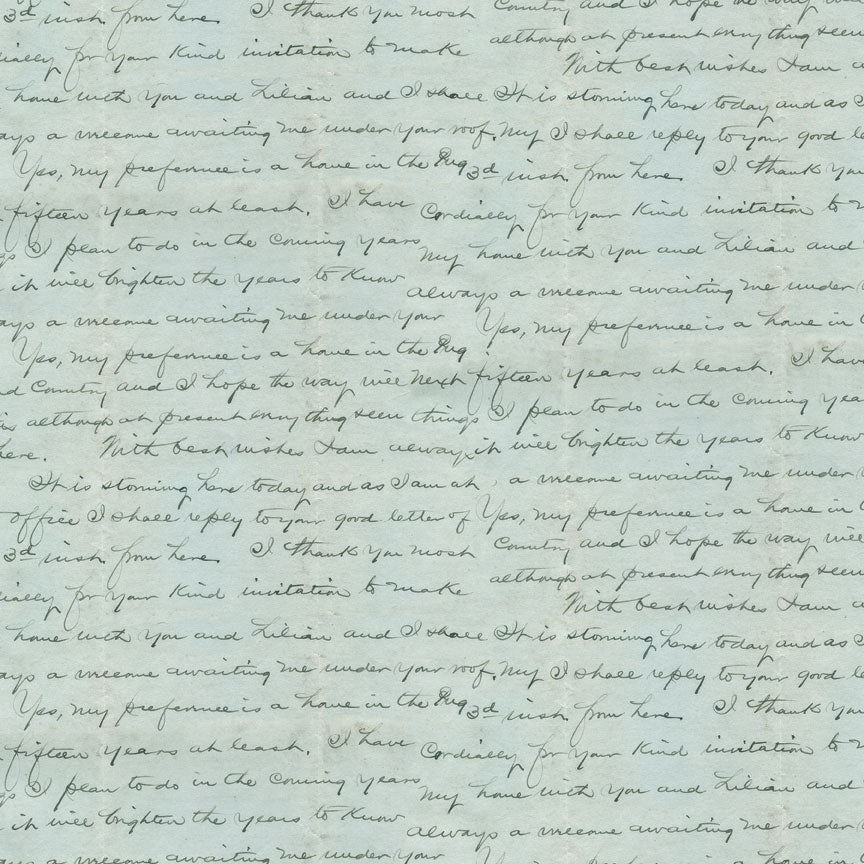 3d inst. from here. I thank you most
Country and I hope the way will
cially for your kind invitation to make
although at present everything seem
With best wishes I am a
home with you and Lilian and I shall
It is storming here today and as I
ays a welcome awaiting me under your roof.
My I shall reply to your good le
Yes, my preference is a home in the Pug
3d inst. from here. I thank you
fifteen years at least. I have
Cordially for your kind invitation to m
gs I plan to do in the coming years
My home with you and Lilian and
it will brighten the years to know
always a welcome awaiting me under
ays a welcome awaiting me under your
Yes, my preference is a home in
Yes, my preference is a home in the Pug
fifteen years at least. I have
nd Country and I hope the way will Next
although at present everything seem things
I plan to do in the coming yea
here. With best wishes I am always
it will brighten the years to know
It is storming here today and as I am at
a welcome awaiting me under
office I shall reply to your good letter of
Yes, my preference is a home in
3d inst. from here. I thank you most
Country and I hope the way will
cially for your kind invitation to make
although at present everything seem
With best wishes I am a
home with you and Lilian and I shall
It is storming here today and as I
ays a welcome awaiting me under your roof.
My I shall reply to your good le
Yes, my preference is a home in the Pug
3d inst. from here. I thank you
fifteen years at least. I have
Cordially for your kind invitation to m
gs I plan to do in the coming years
My home with you and Lilian and
it will brighten the years to know
always a welcome awaiting me under
ays a welcome awaiting me under your